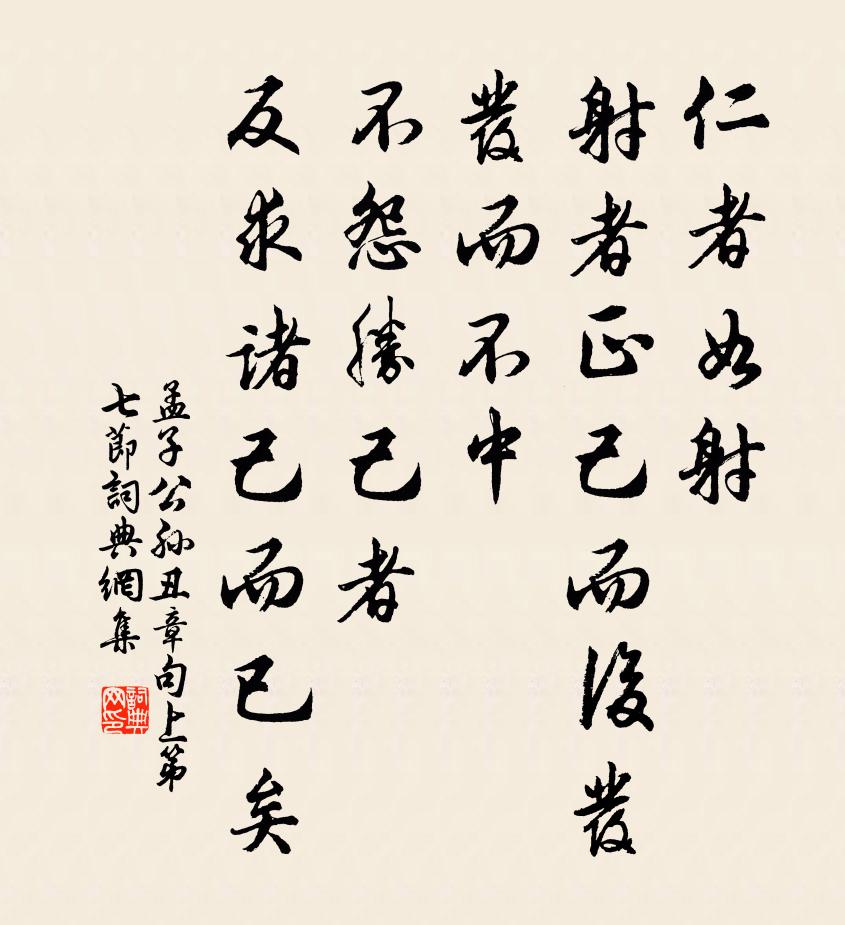 仁者如射
射者正己而後發
發而不中
不怨勝己者
反求諸己而已矣
孟子公孫丑章句上第
七節詞典網集
詞典网印